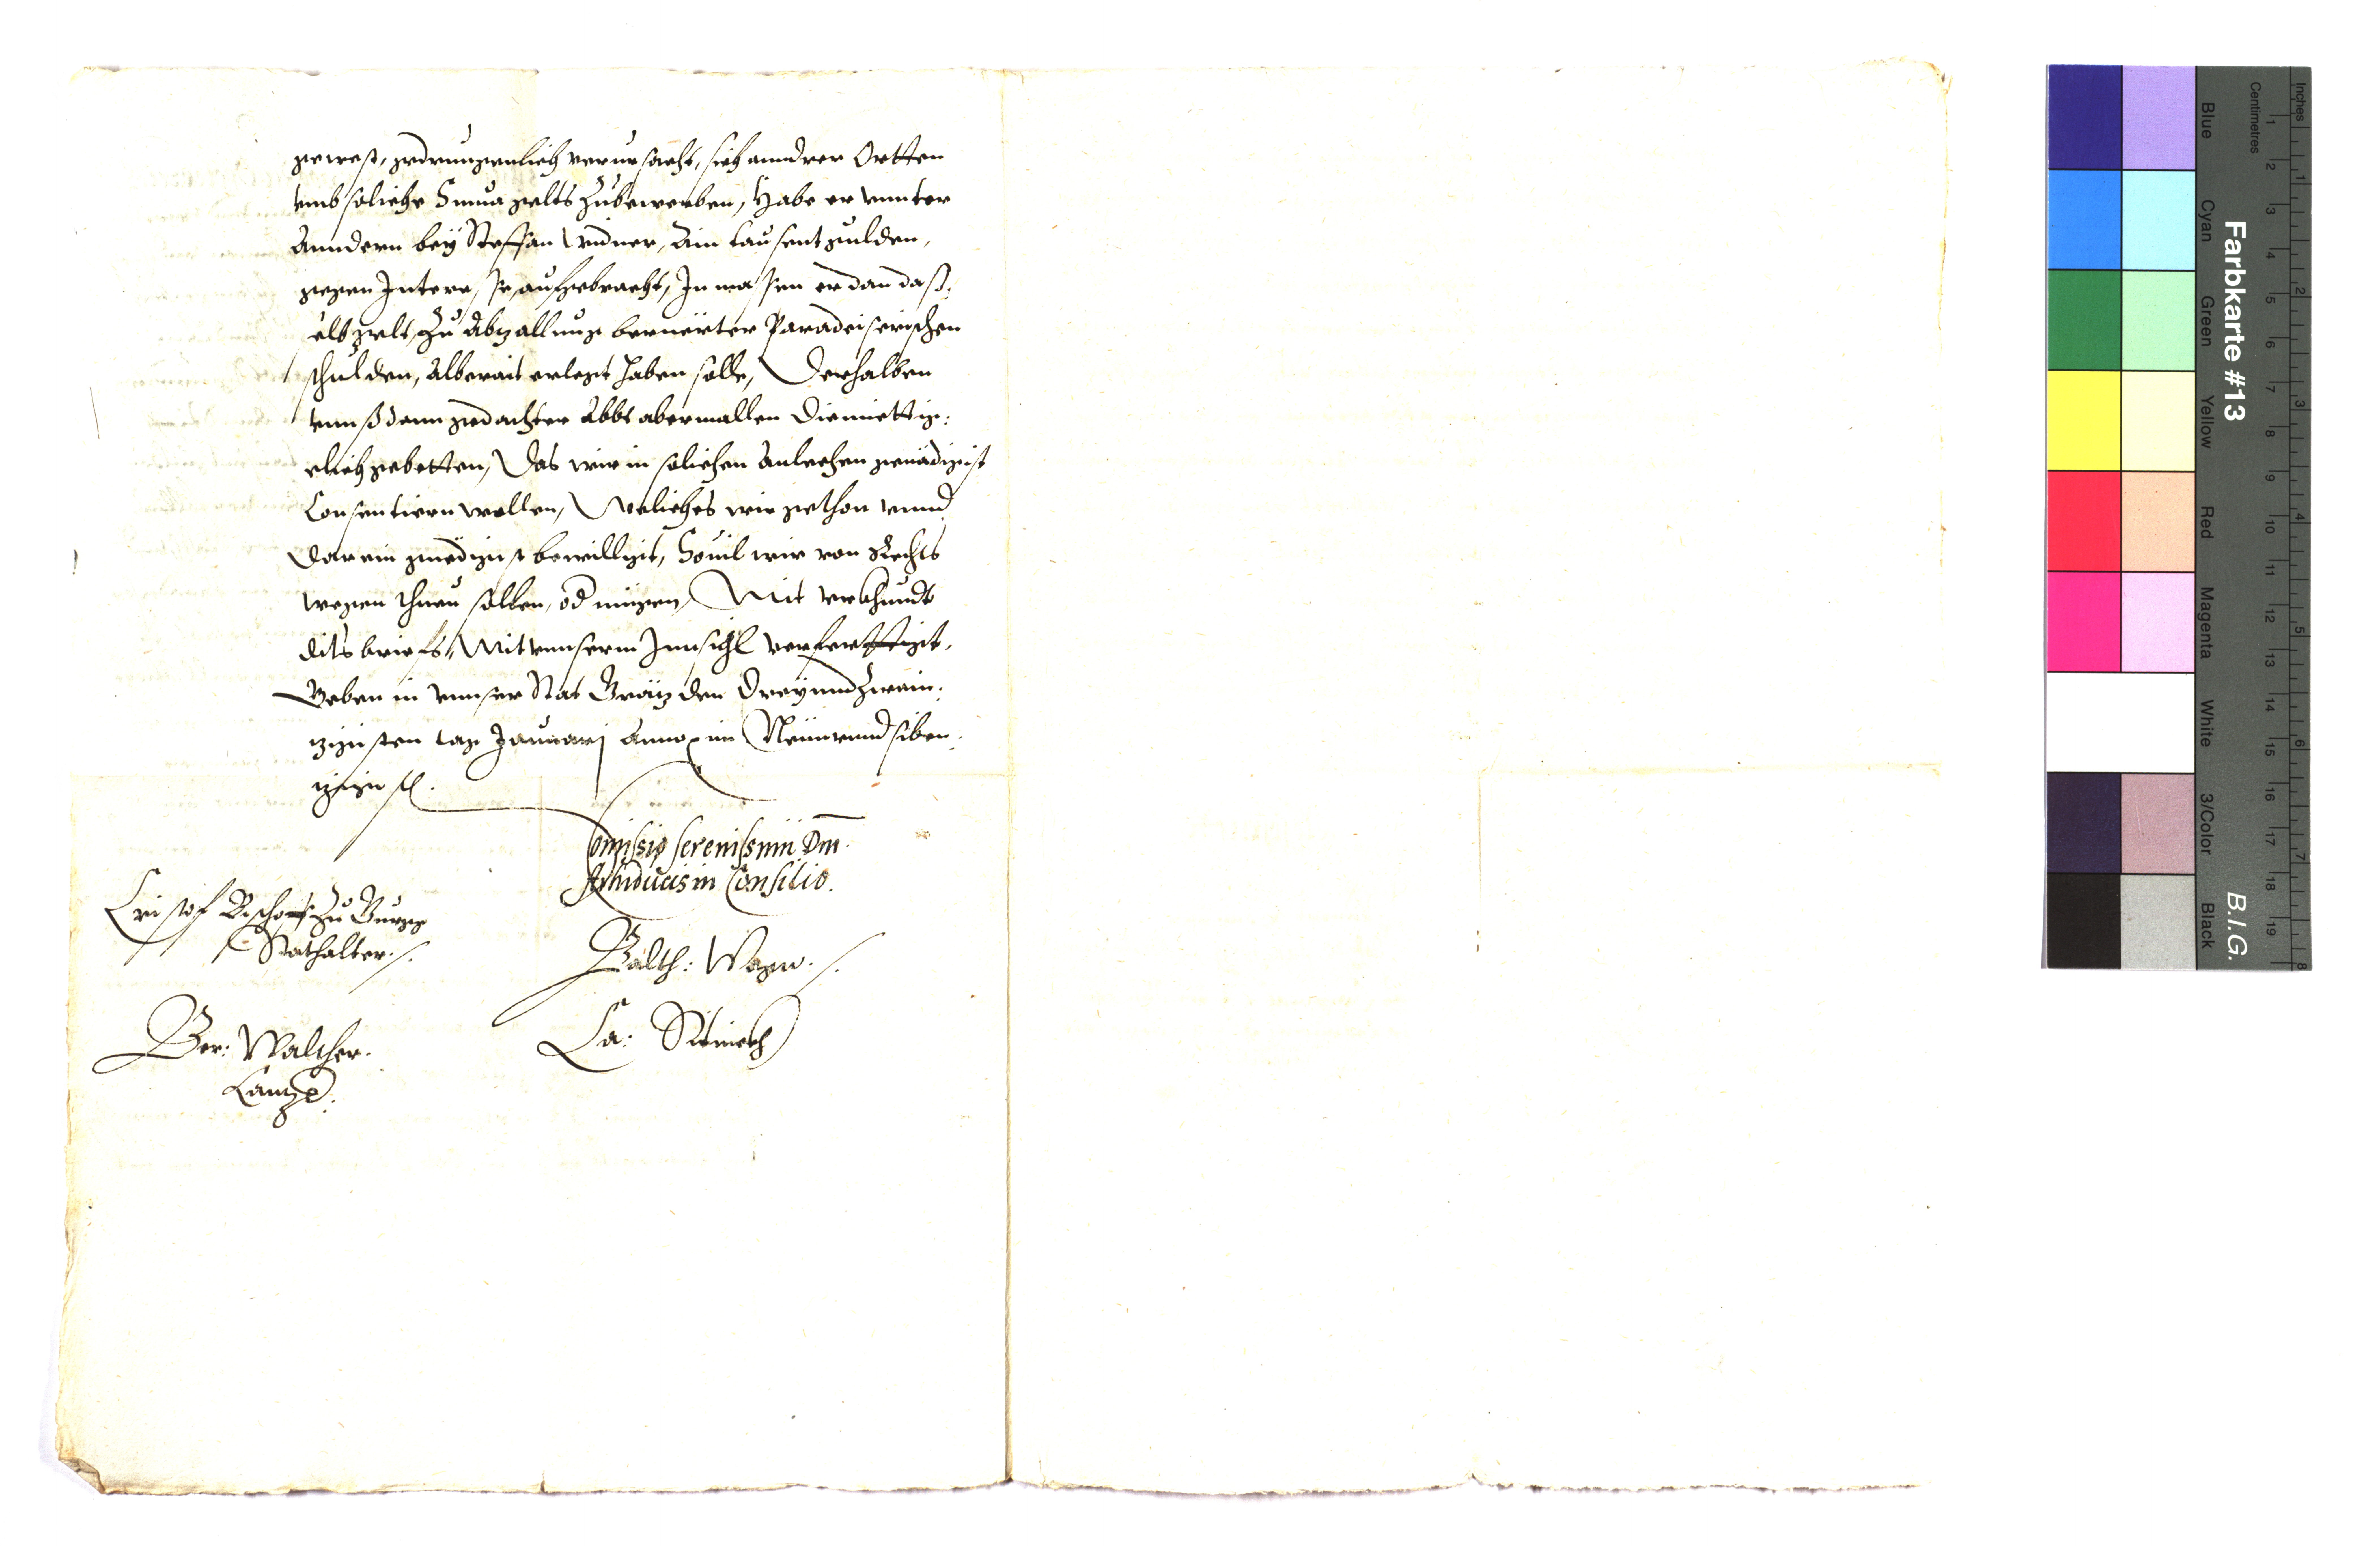 gewest, gedrungenlich verursacht, sich anndrer Ortten
vmb soliche Suma gelts Zubewerben, Habe er vnnter
Anndern bey Steffan Widner, Ain tausent gulden,
gegen Interesse, aufgebracht, Inmassen er dan dass:
elb gelt, Zu Abzallung berüerter Paradeiserischen
schulden, Alberait erlegt haben solle, Derhalben
vnnß dann gedachter Abbt abermallen Diemiettig:
elich gebetten, Das wir in solichen Anlechen genädigist
Consentiern wollen, Weliches wir gethon vnnd
Darein gnedigist bewilligt, Souil wir von Rechts
wegen thuen sollen, od mügen, Mit vrkhundt
dits briefs, Mit vnnserm Innsigl verferttigt,
Geben in vnnser Stat Grätz den Dreyundzwain:
zigisten tag Januarj Anno im Neünvnndsiben:
zigist.
Comissio Serenissimi Dm̅
Archiducis in Consilio.
Cristof Bischof Zu Gurgg
Stathalter
Balth: Wagn
Ber: Walther.
Cantzl
Ca:
Farbkarte #13
B.I.G.
Inches
Centimetres
1 2 3 4 5 6 7 8 9 10 11 12 13 14 15 16 17 18 19
1 2 3 4 5 6 7 8
Blue
Cyan
Green
Yellow
Red
Magenta
White
3/Color
Black